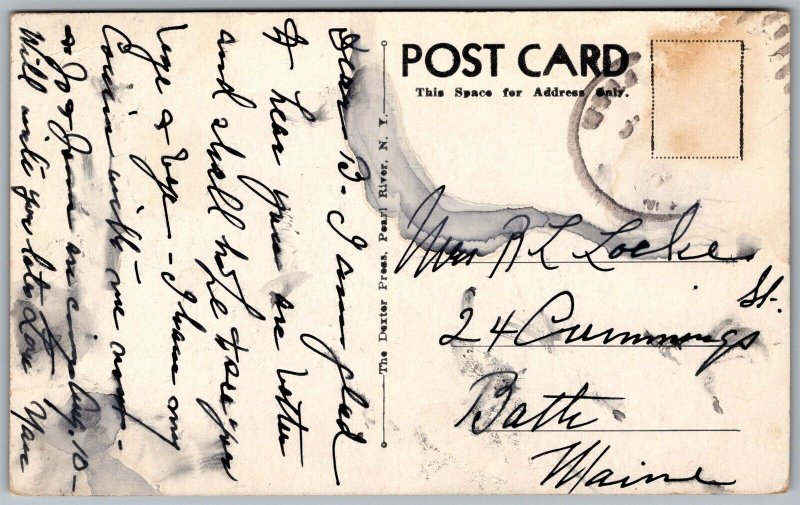 POST CARD
This Space for Address Only.
The Dexter Press, Pearl River, N. Y.
Dear B - I am glad
to hear you are better
and shall hope to see you
I have my
Cousin with me now -
Aug. 10 -
Will write you later Love
Mrs R L Locke
24 Cummings St.
Bath
Maine